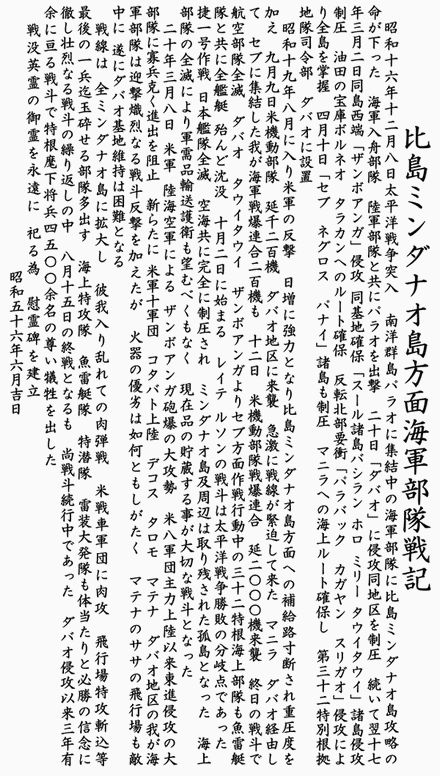 比島ミンダナオ島方面海軍部隊戦記
昭和十六年十二月八日太平洋戦争突入　南洋群島パラオに集結中の海軍部隊に比島ミンダナオ島攻略の
命が下った　海軍入舟部隊　陸軍部隊と共にパラオを出撃　二十日「ダバオ」に侵攻同地区を制圧　続いて翌十七
年三月二日同島西端「ザンボアンガ」侵攻　同基地確保「スール諸島バシラン　ホロ　ミリー　タウイタウイ」諸島侵攻
制圧　油田の宝庫ボルネオ　タラカンへのルート確保　反転北部要衝「パラバック　カガヤン　スリガオ」侵攻によ
り全島を掌握　四月十日「セブ　ネグロス　パナイ」諸島も制圧　マニラへの海上ルート確保し　第三十二特別根拠
地隊司令部　ダバオに設置
昭和十九年八月に入り米軍の反撃　日増に強力となり比島ミンダナオ島方面への補給路寸断され重圧度を
加え　九月九日米機動部隊　延千二百機　ダバオ地区に来襲　急激に戦線が緊迫して来た　マニラ　ダバオ経由し
て　セブに集結した我が海軍戦爆連合二百機も　十二日　米機動部隊戦爆連合　延二〇〇〇機来襲　終日の戦斗で
航空部隊全滅　ダバオ　タウイタウイ　ザンボアンガよりセブ方面作戦行動中の三十二特根海上部隊も魚雷艇
隊と共に全艦艇　殆んど沈没　十月二日に始まる　レイテ　ルソンの戦斗は太平洋戦争勝敗の分岐点であった
捷一号作戦　日本艦隊全滅　空海共に完全に制圧され　ミンダナオ島及周辺は取り残された孤島となった　海上
部隊の全滅により軍需品輸送護衛も望むべくもなく　現在品の貯蔵する事が大切な戦斗となった
二十年三月八日　米軍　陸海空軍による　ザンボアンガ砲爆の大攻勢　米八軍団主力上陸以来東進侵攻の大
部隊に寡兵克く進出を阻止　新らたに米軍十軍団　コタバト上陸　デコス　タロモ　マテナ　ダバオ地区の我が海
軍部隊は迎撃熾烈なる戦斗反撃を加えたが　火器の優劣は如何ともしがたく　マテナのササの飛行場も敵
中に　遂にダバオ基地維持は困難となる
戦線は　全ミンダナオ島に拡大し　彼我入り乱れての肉弾戦　米戦車軍団に肉攻　飛行場特攻斬込等
最後の一兵迄玉砕せる部隊多出す　海上特攻隊　魚雷艇隊　特潜隊　雷装大発隊も体当たりと必勝の信念に
徹し壮烈なる戦斗の繰り返しの中　八月十五日の終戦となるも　尚戦斗続行中であった　ダバオ侵攻以来三年有
余に亘る戦斗で特根麾下将兵四五〇〇余名の尊い犠牲を出した
戦没英霊の御霊を永遠に　祀る為　慰霊碑を建立
昭和五十六年六月吉日